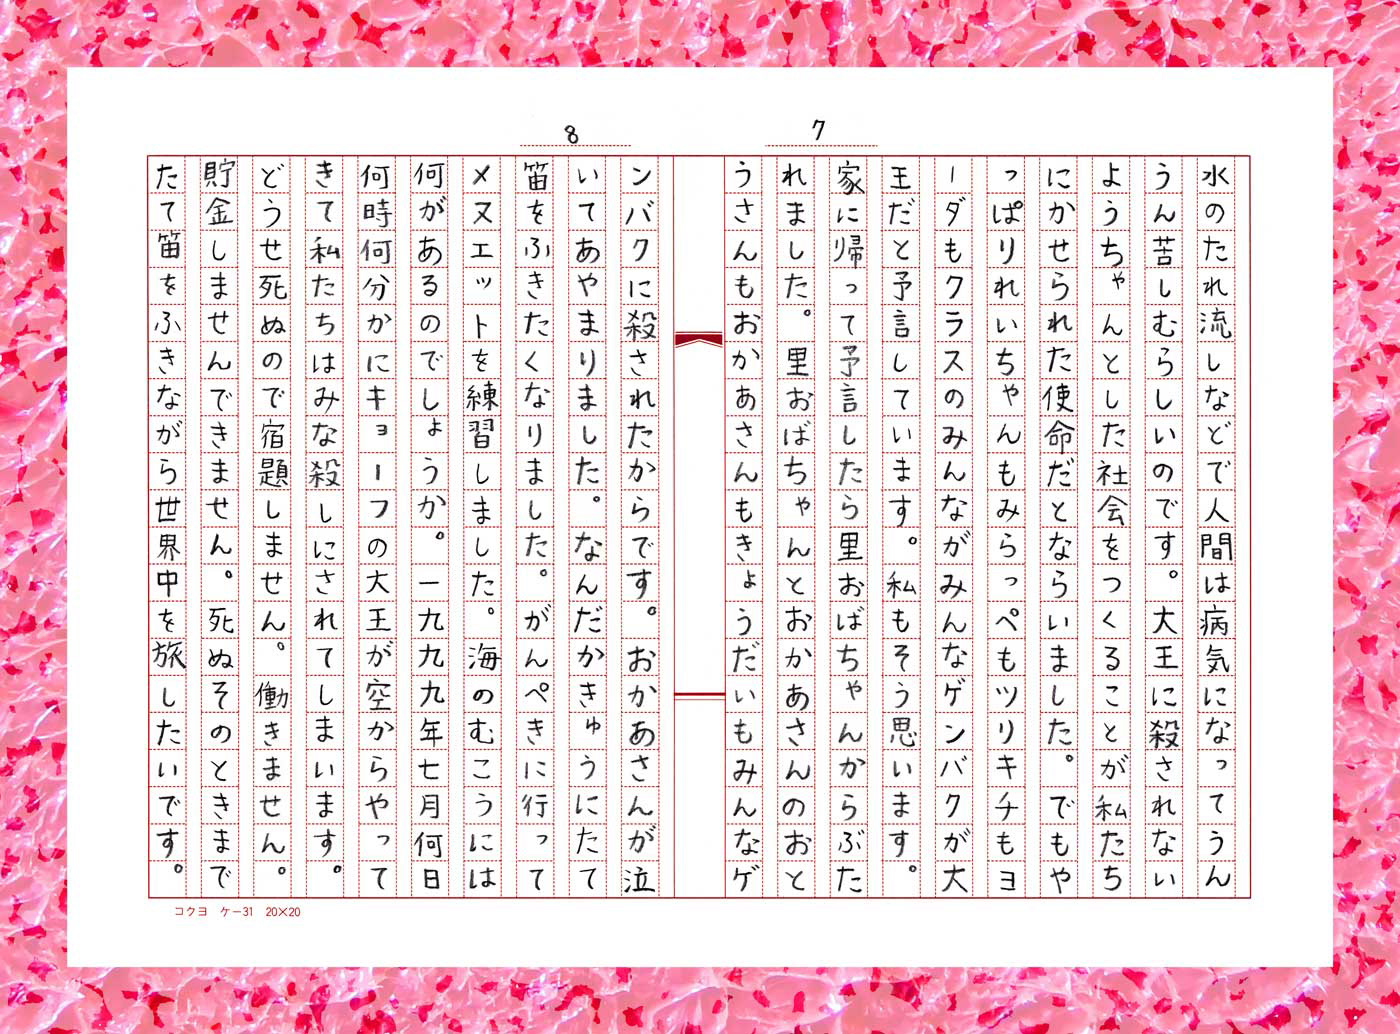 7
水のたれ流しなどで人間は病気になってうん
うん苦しむらしいのです。大王に殺されない
ようちゃんとした社会をつくることが私たち
にかせられた使命だとならいました。でもや
っぱりれいちゃんもみらっぺもツリキチもヨ
ーダもクラスのみんながみんなゲンバクが大
王だと予言しています。私もそう思います。
家に帰って予言したら里おばちゃんからぶた
れました。里おばちゃんとおかあさんのおと
うさんもおかあさんもきょうだいもみんなゲ
8
ンバクに殺されたからです。おかあさんが泣
いてあやまりました。なんだかきゅうにたて
笛をふきたくなりました。がんぺきに行って
メヌエットを練習しました。海のむこうには
何があるのでしょうか。一九九九年七月何日
何時何分かにキョーフの大王が空からやって
きて私たちはみな殺しにされてしまいます。
どうせ死ぬので宿題しません。働きません。
貯金しませんできません。死ぬそのときまで
たて笛をふきながら世界中を旅したいです。
コクヨ ケー31 20×20